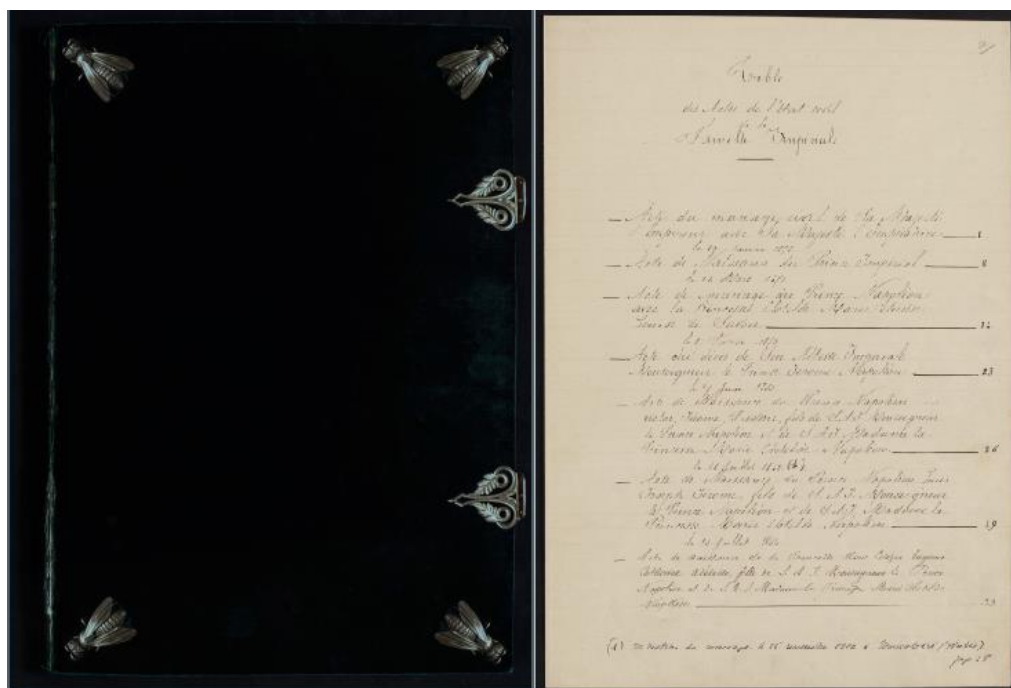 Table
des Actes de l'état civil
de la
Famille Impériale
— Acte du mariage civil de Sa Majesté
l'Empereur avec Sa Majesté l'Impératrice 1
le 29 janvier 1853
— Acte de Naissance du Prince Impérial 8
le 16 Mars
— Acte de mariage du Prince Napoléon
avec la Princesse Clotilde Marie Thérèse
Louise de Savoie
le
— Acte de décès de Son Altesse Impériale
Monseigneur le Prince Jérôme Napoléon 23
le Juin 1860
— Acte de Naissance du Prince Napoléon
Victor, Jérôme, fils de S.A.I. Monseigneur
le Prince Napoléon et de S.A.I. Madame la
Princesse Marie Clotilde Napoléon 26
le 18 Juillet 1862
— Acte de Naissance du Prince Napoléon Louis
Joseph Jérôme, fils de S.A.I. Monseigneur
le Prince Napoléon et de S.A.I. Madame la
Princesse Marie Clotilde Napoléon
le Juillet 1864
— Acte de naissance de la Princesse Marie Eugénie
Catherine Adélaïde, fille de S.A.I. Monseigneur le Prince
Napoléon et de S.A.I. Madame la Princesse Marie Clotilde
Napoléon
(1) mention de mariage à
page 28